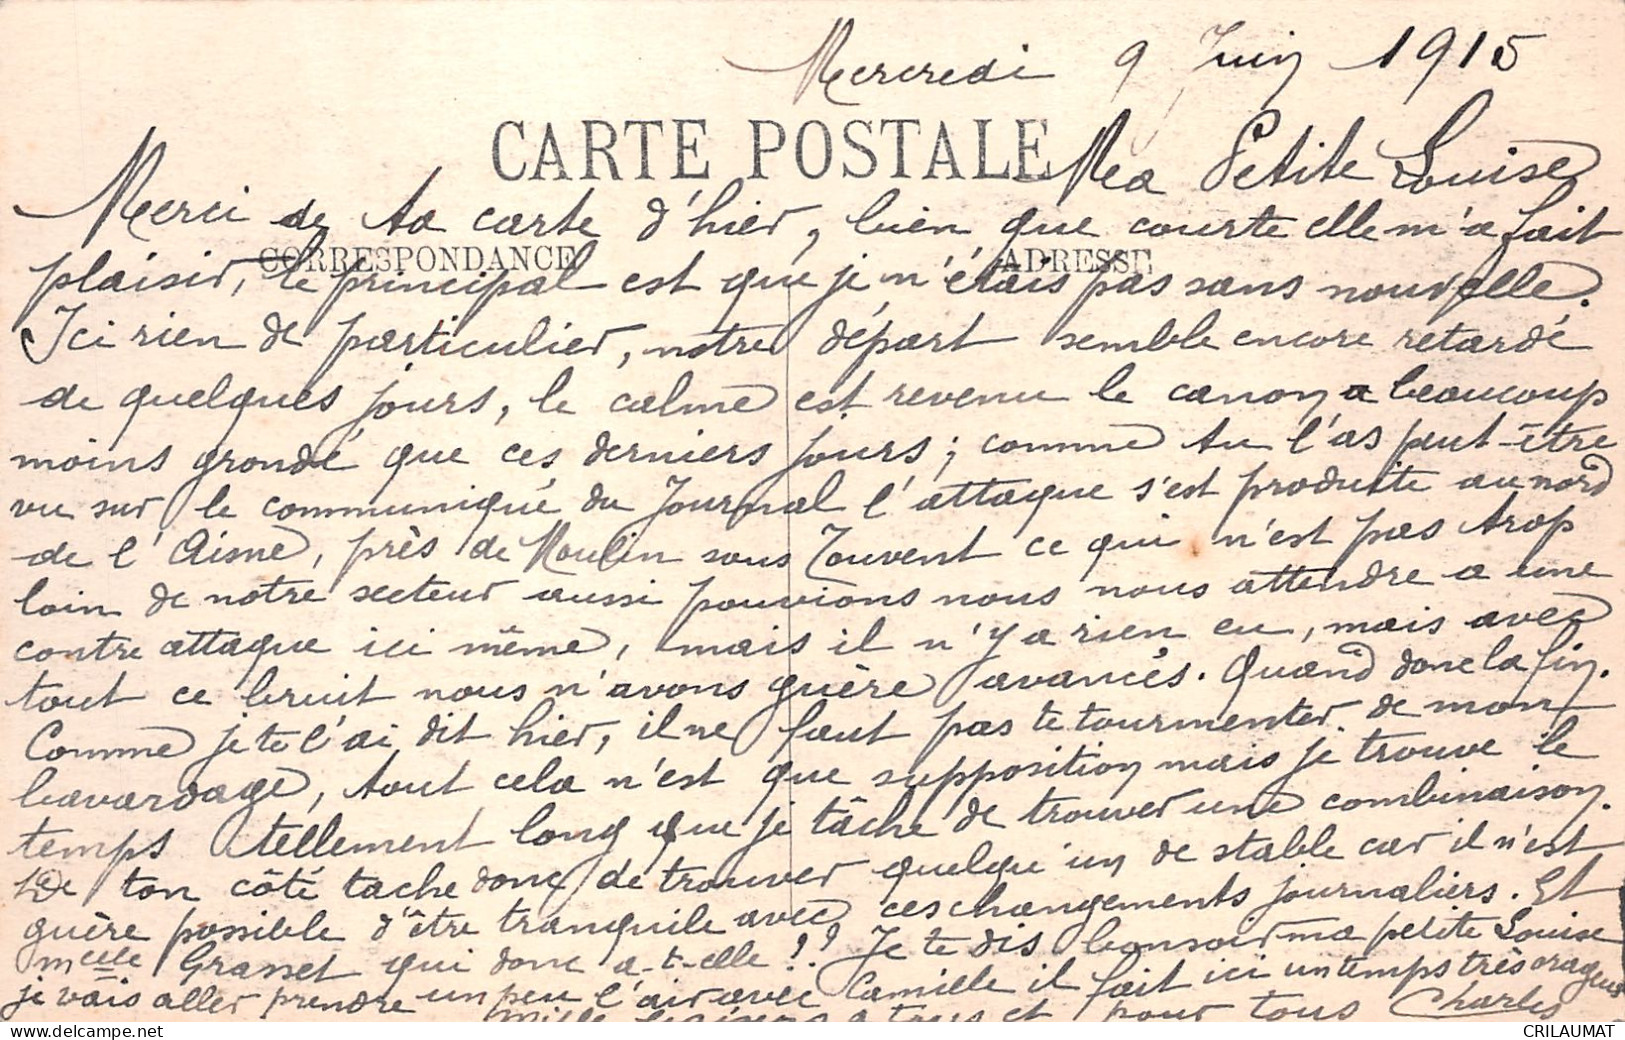 Mercredi 9 Juin 1915
CARTE POSTALE
Ma Petite Louise
Merci de ta carte d'hier, bien que courte elle m'a fait
CORRESPONDANCE
ADRESSE
plaisir, le principal est que je n'étais pas sans nouvelle.
Ici rien de particulier, notre départ semble encore retardé
de quelques jours, le calme est revenu le canon a beaucoup
moins grondé que ces derniers jours; comme tu l'as peut-être
vu sur le communiqué du Journal l'attaque s'est produite au nord
de l'Aisne, près de Moulin sous Touvent ce qui n'est pas trop
loin de notre secteur aussi pouvions nous nous attendre a une
contre attaque ici même, mais il n'y a rien eu, mais avec
tout ce bruit nous n'avons guère avancés. Quand donc la fin.
Comme je te l'ai dit hier, il ne faut pas te tourmenter de mon
bavardage, tout cela n'est que supposition mais je trouve le
temps tellement long que je tâche de trouver une combinaison.
De ton côté tache donc de trouver quelqu'un de stable car il n'est
guère possible d'être tranquile avec ces changements journaliers. Et
Melle Grasset qui donc a-t-elle!? Je te dis bonsoir ma petite Louise
je vais aller prendre un peu l'air avec Camille il fait ici un temps très orageux
mille baisers a tous et pour tous Charles
CRILAUMAT